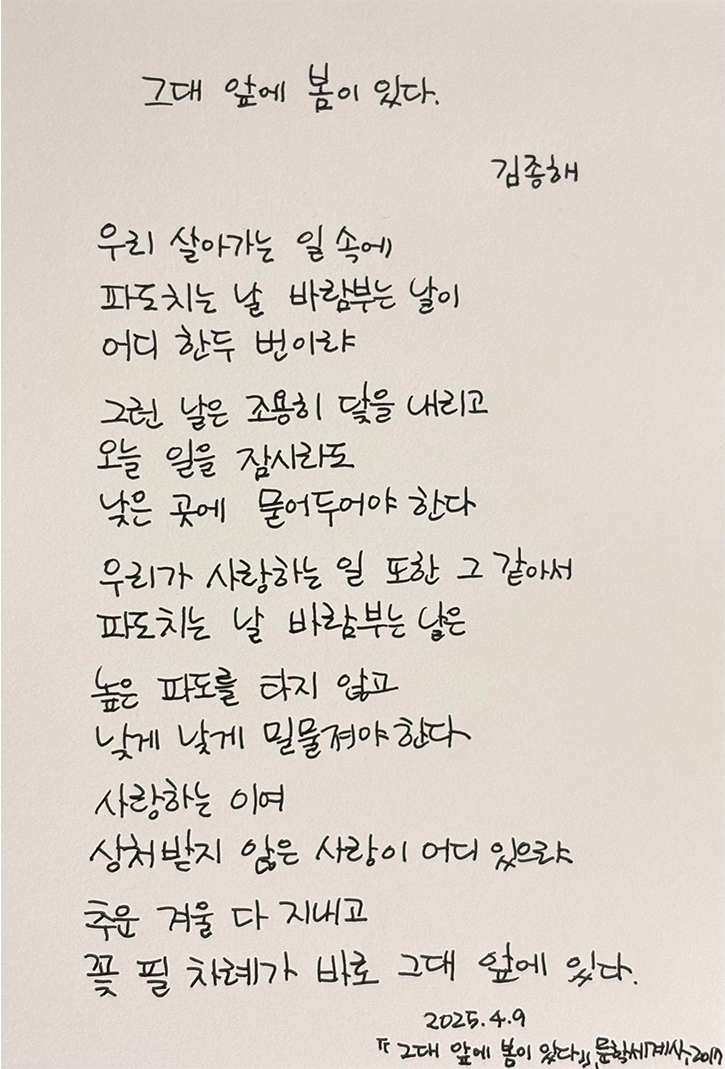 그대 앞에 봄이 있다.
김종해
우리 살아가는 일 속에
파도치는 날 바람부는 날이
어디 한두 번이랴
그런 날은 조용히 닻을 내리고
오늘 일을 잠시라도
낮은 곳에 묻어두어야 한다
우리가 사랑하는 일 또한 그 같아서
파도치는 날 바람부는 날은
높은 파도를 타지 않고
낮게 낮게 밀물져야 한다
사랑하는 이여
상처받지 않은 사랑이 어디 있으랴
추운 겨울 다 지내고
꽃 필 차례가 바로 그대 앞에 있다.
2025.4.9
『그대 앞에 봄이 있다』, 문학세계사, 2017